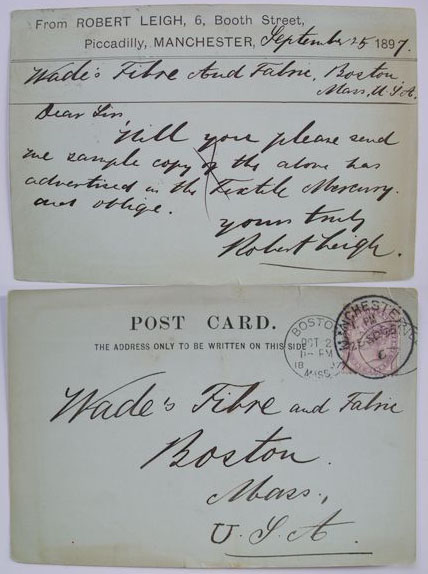 From ROBERT LEIGH, 6, Booth Street,
Piccadilly, MANCHESTER, September 25 1897.
Wade's Fibre And Fabric, Boston,
Mass, U.S.A.
Dear Sir,
Will you please send
me sample copy of the above has
advertised in the Textile Mercury.
and oblige.
yours truly
Robert Leigh.
POST CARD.
THE ADDRESS ONLY TO BE WRITTEN ON THIS SIDE
BOSTON
OCT 2
PM
18
MASS.
MANCHESTER
Wade's Fibre and Fabric
Boston.
Mass.,
U.S.A.